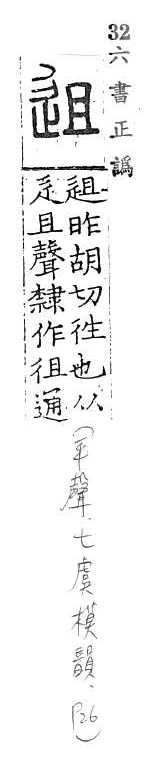 32
六書正譌
䢐
䢐昨胡切徃也从
辵且聲隸作徂通
(平聲、七虞模韻、P26)